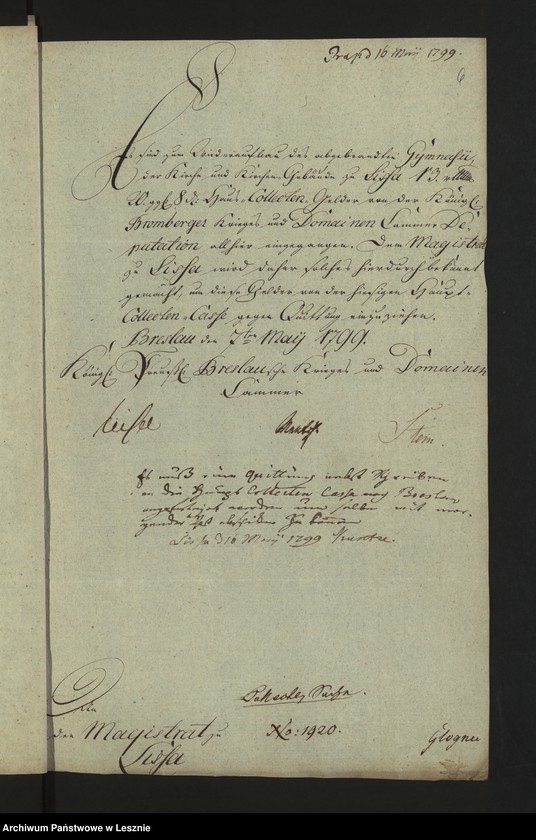 Praes d 16 Maii 1799.
6
Es sind zum Wiederaufbau des abgebrandten Gymnasii,
der Kirche und Kirchen-Gebäude zu Lissa 13
Haus-Collecten-Gelder von der Königl.
Bromberger Krieges und Domainen Cammer De-
putation allhier eingegangen. Dem Magistrat
zu Lissa wird daher solches hierdurch bekannt
gemacht, um diese Gelder von der hiesigen Haupt-
Collecten-Casse gegen Quittung einzuziehen.
Breslau den 7ten May 1799.
Königl. Preußl. Breslausche Krieges und Domainen
Cammer
Stein.
Es muß eine Quittung nebst Schreiben
an die Haupt Collecten Casse nach Breslau
angefertigt werden um selbe mit
Lissa d 16 Maii 1799
An
den Magistrat zu
Lissa
No: 1920.
Glogner
Archiwum Państwowe w Lesznie